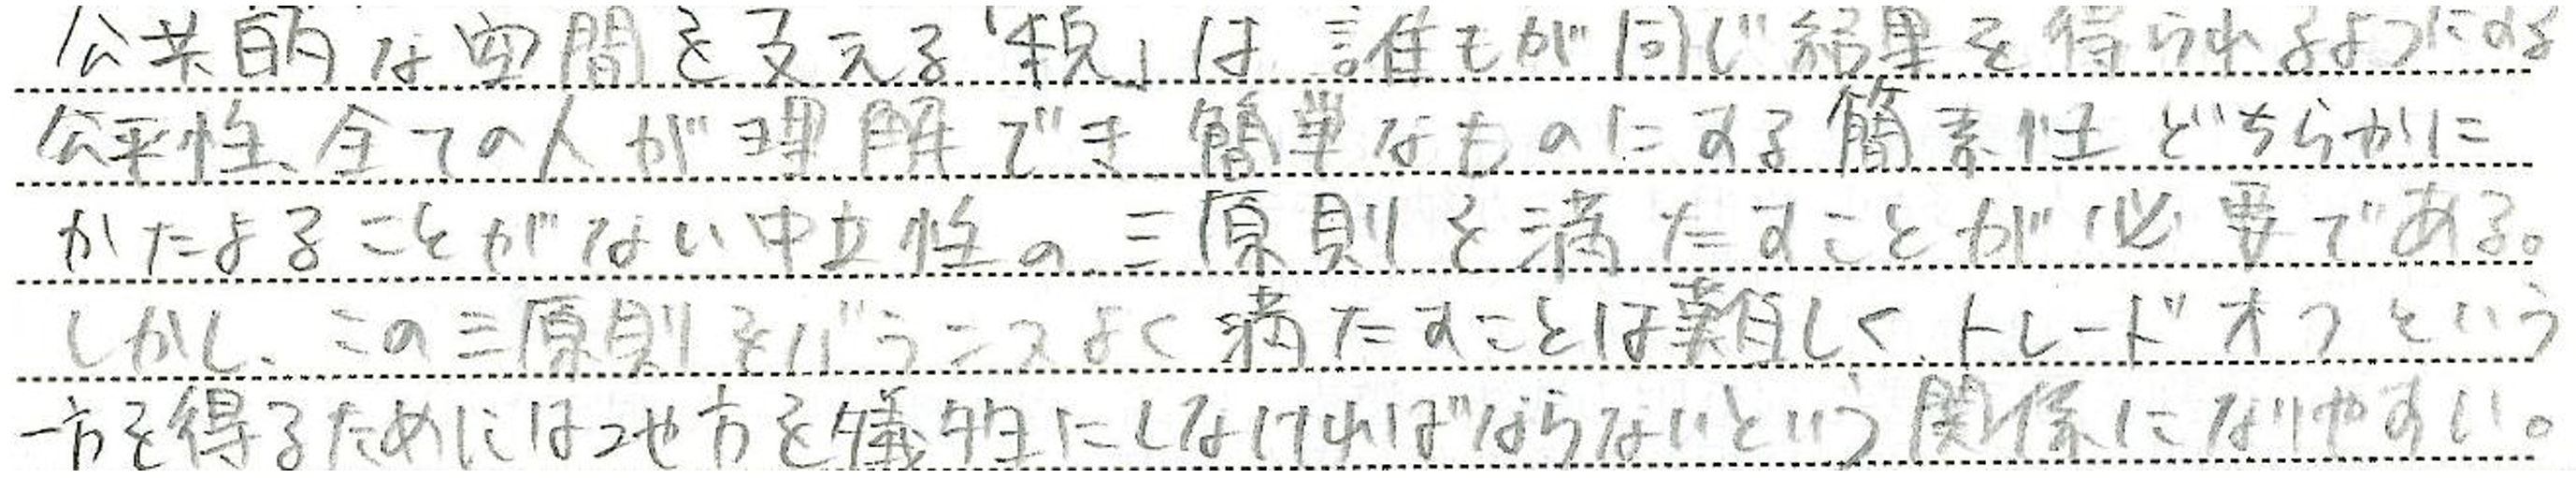 公共的な空間を支える「税」は、誰もが同じ結果を得られるようにする
公平性、全ての人が理解でき、簡単なものにする簡素性、どちらかに
かたよることがない中立性の三原則を満たすことが必要である。
しかし、この三原則をバランスよく満たすことは難しく、トレードオフという
一方を得るためには他方を犠牲にしなければならないという関係になりやすい。